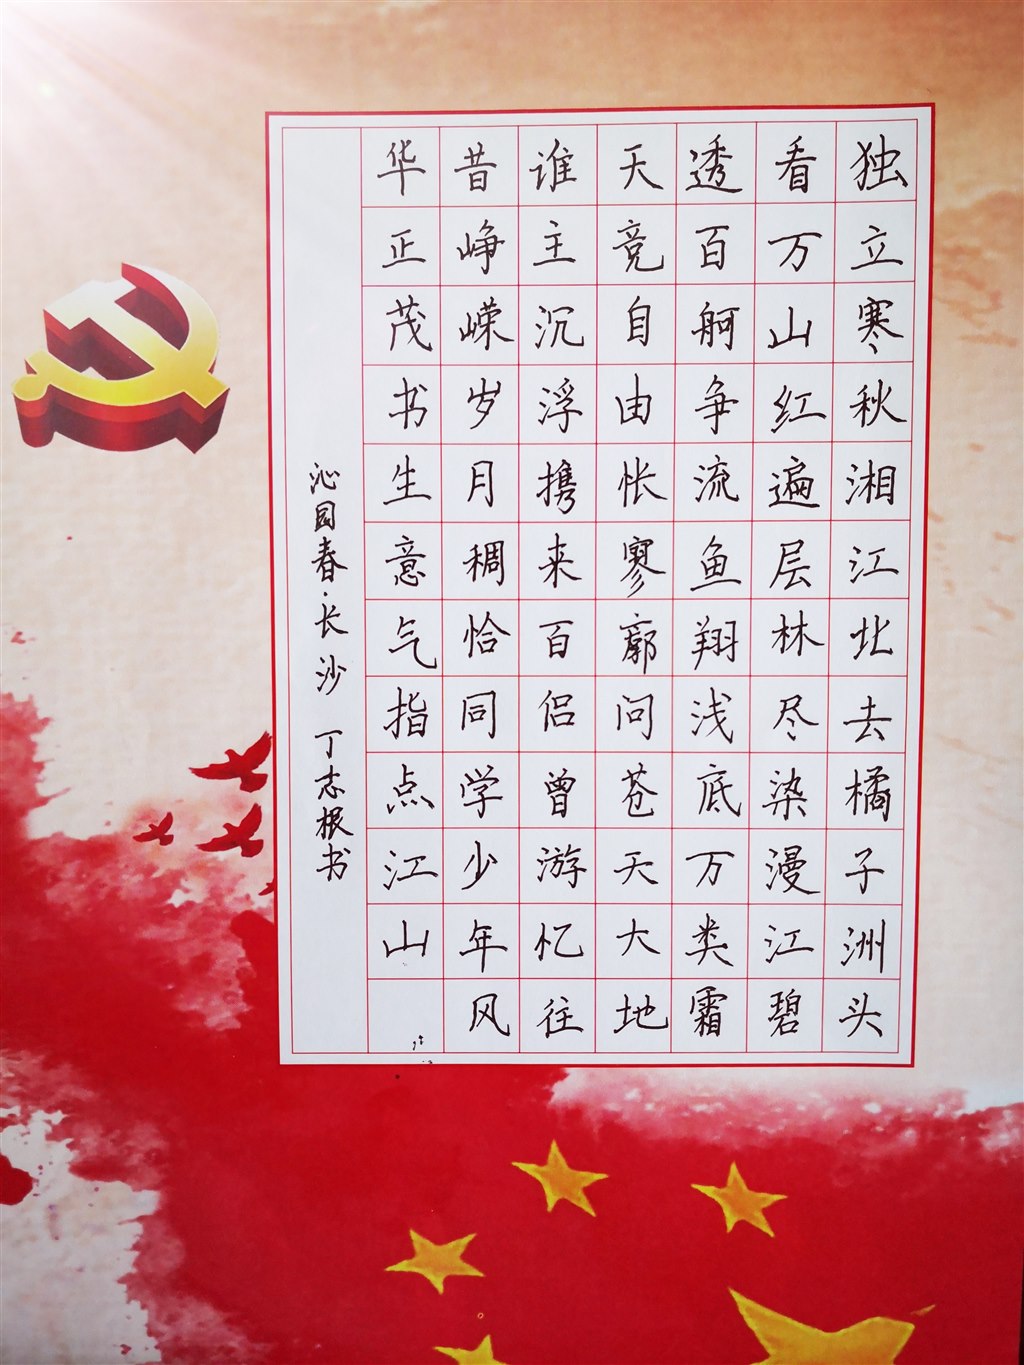 独立寒秋湘江北去橘子洲头
看万山红遍层林尽染漫江碧
透百舸争流鱼翔浅底万类霜
天竞自由怅寥廓问苍天大地
谁主沉浮携来百侣曾游忆往
昔峥嵘岁月稠恰同学少年风
华正茂书生意气指点江山
沁园春·长沙 丁志根书